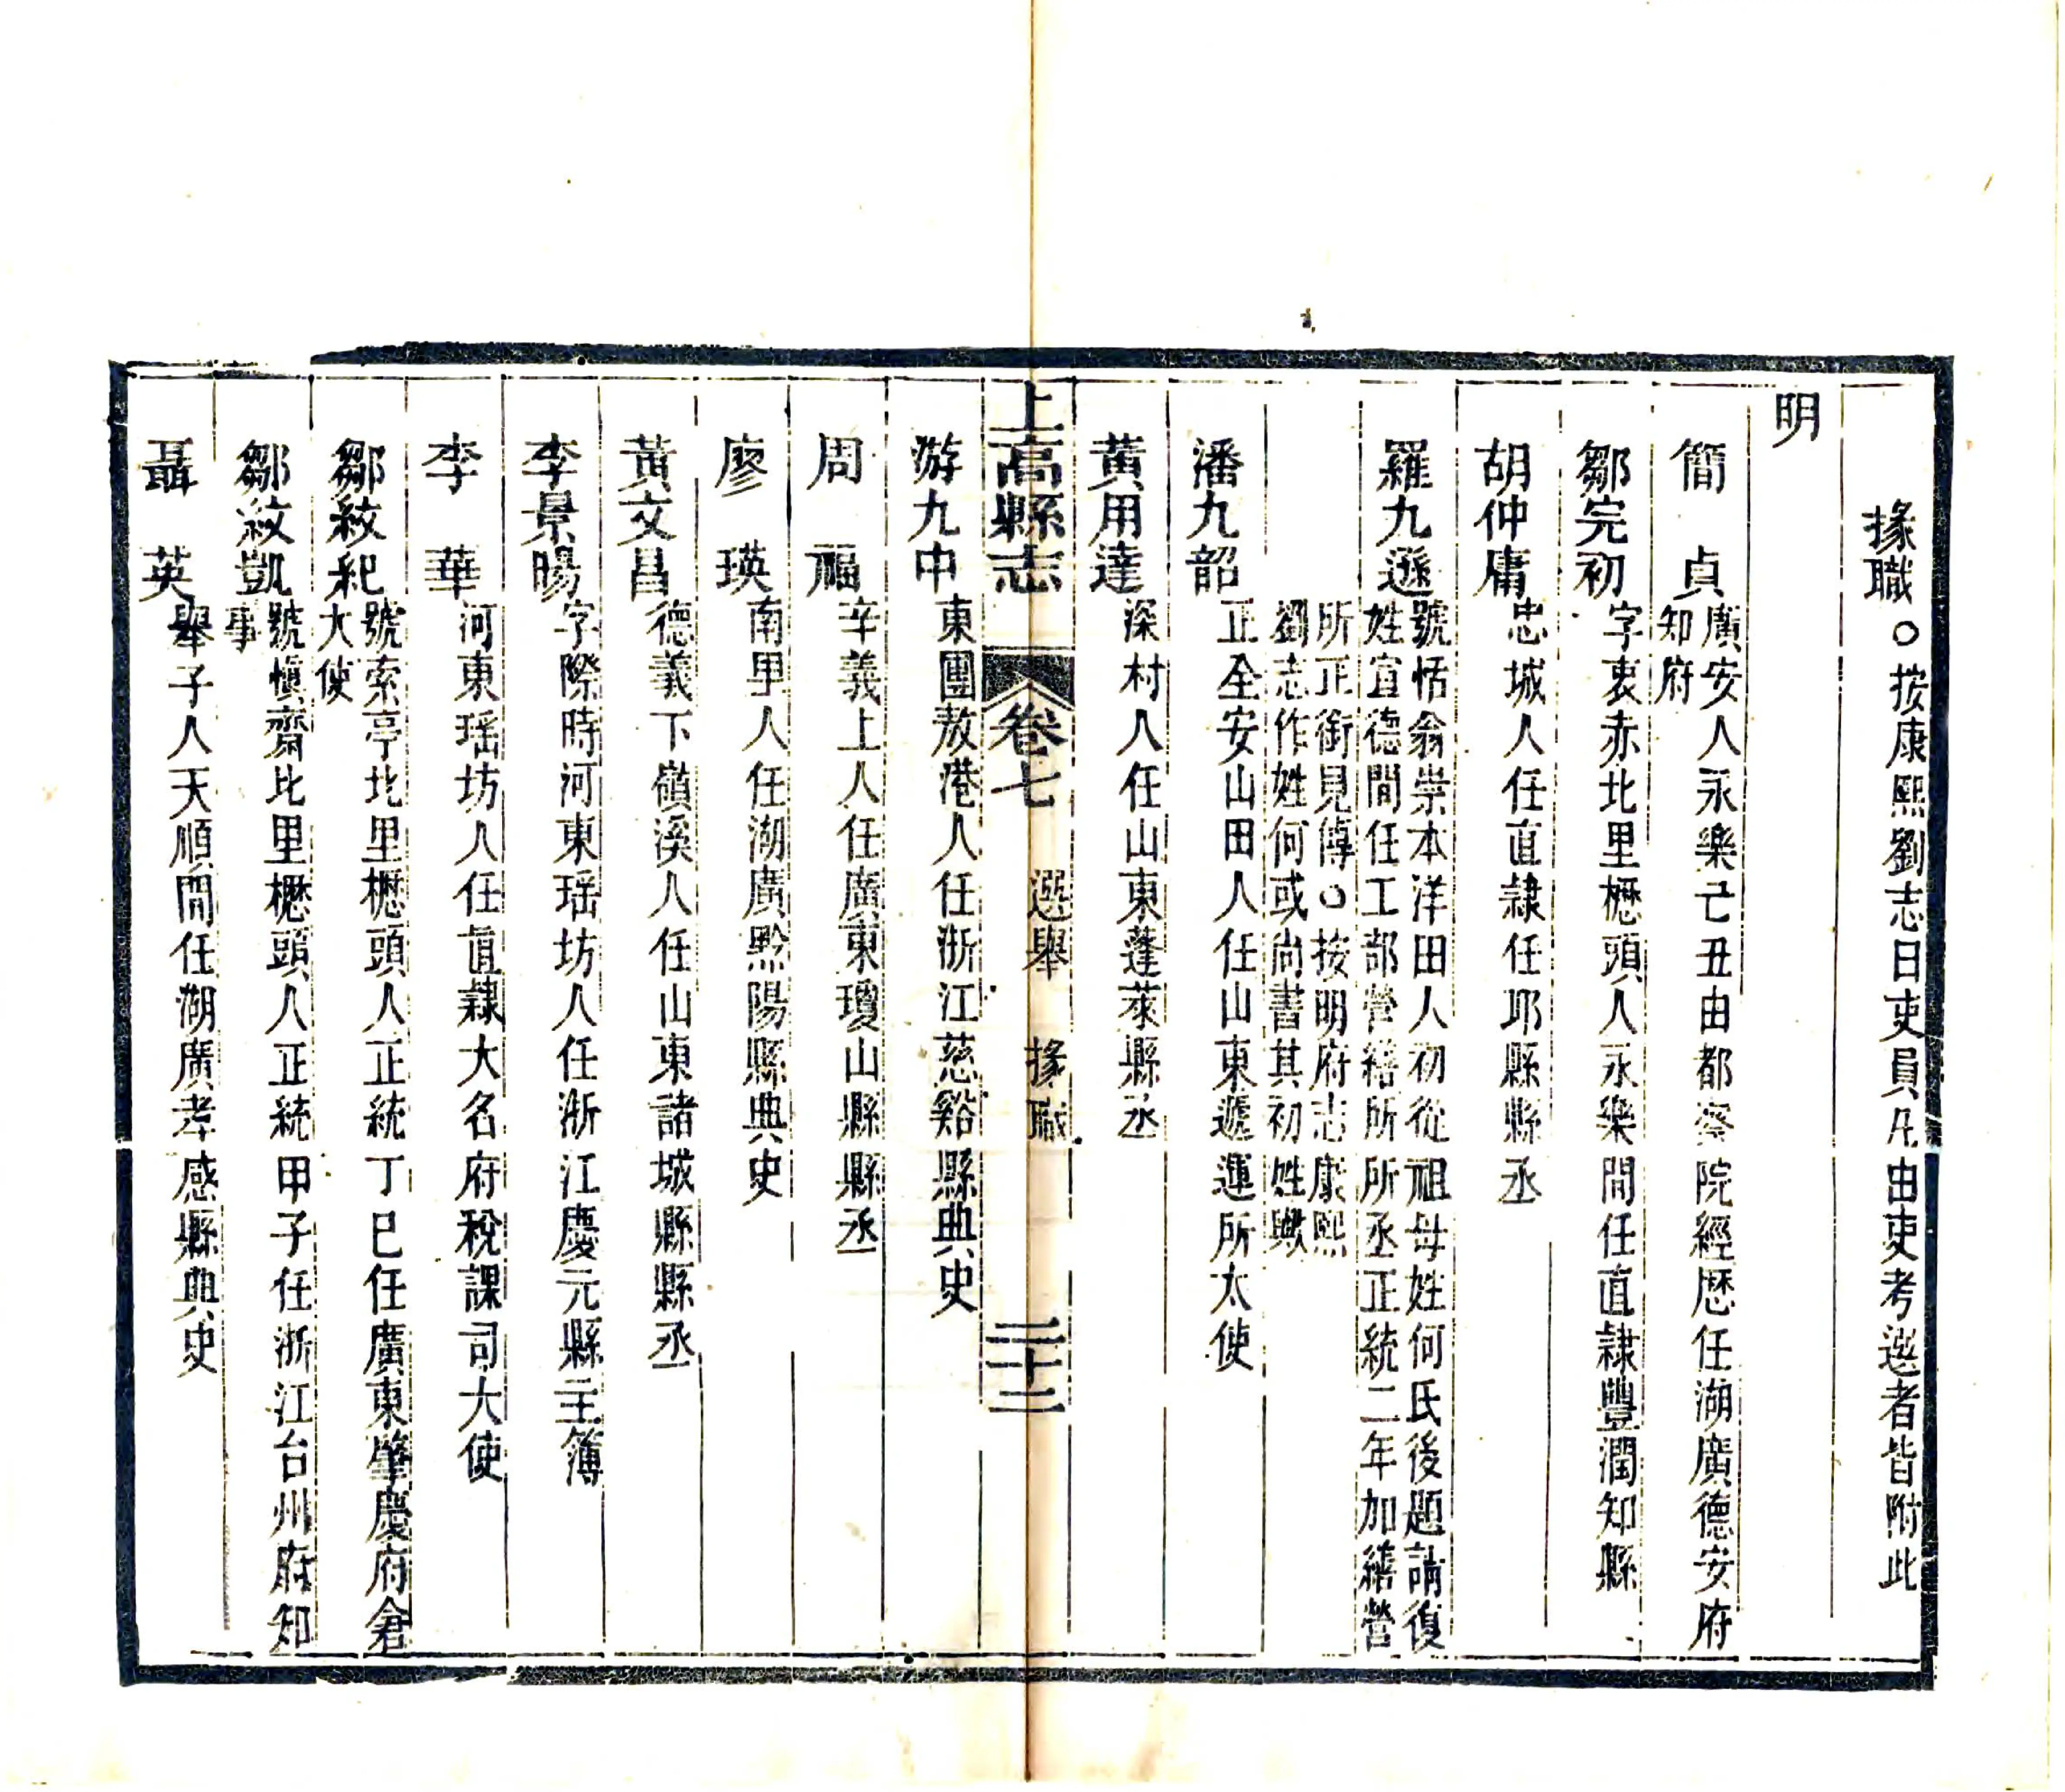 掾職○按康熙劉志曰吏員凡由吏考選者皆附此
明
簡　貞　廣安人永樂己丑由都察院經歷任湖廣德安府
知府
鄒完初　字衷赤北里櫪頭人永樂間任直隷豐潤知縣
胡仲庸　忠城人任直隷任邱縣縣丞
羅九遜　號恬翁崇本洋田人初從祖母姓何氏後題請復
姓宣德間任工部營繕所所丞正統二年加繕營
所正銜見傳○按明府志康熙
劉志作姓何或尚書其初姓歟
潘九韶　正全安山田人任山東遞運所大使
黃用達　深村人任山東蓬萊縣丞
上高縣志　卷七　選舉　掾職　二十二
游九中　東團敖港人任浙江慈谿縣典史
周　福　辛義上人任廣東瓊山縣縣丞
廖　瑛　南甲人任湖廣黔陽縣典史
黃文昌　德義下嶺溪人任山東諸城縣縣丞
李景暘　字際時河東瑶坊人任浙江慶元縣主簿
李　華　河東瑶坊人任直隷大名府稅課司大使
鄒紋紀　號索亭北里櫪頭人正統丁巳任廣東肇慶府倉
大使
鄒紋凱　號愼齋北里櫪頭人正統甲子任浙江台州府知
事
聶　英　舉子人天順間任湖廣孝感縣典史